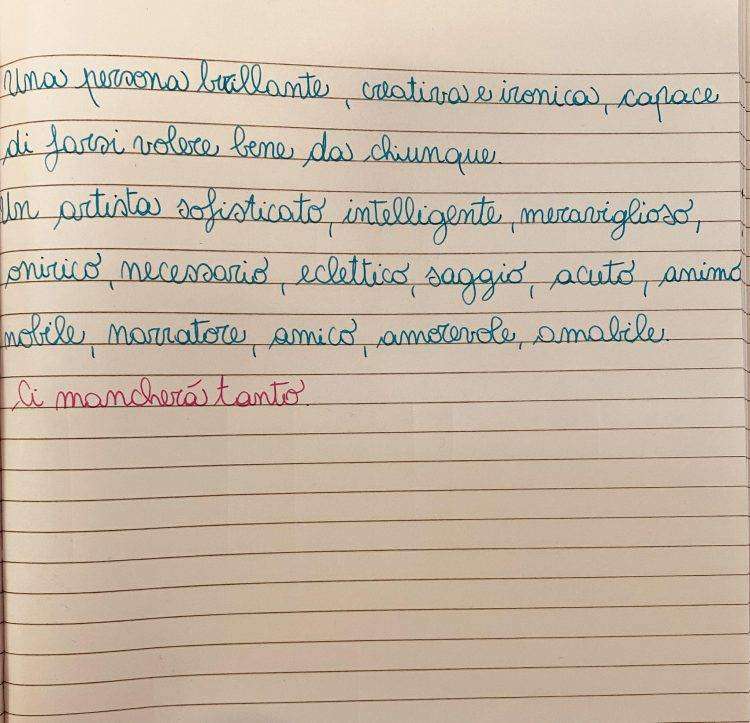 Una persona brillante, creativa e ironica, capace
di farsi volere bene da chiunque.
Un artista sofisticato, intelligente, meraviglioso,
onirico, necessario, eclettico, saggio, acuto, animo
nobile, narratore, amico, amorevole, amabile.
Ci mancherá tanto.